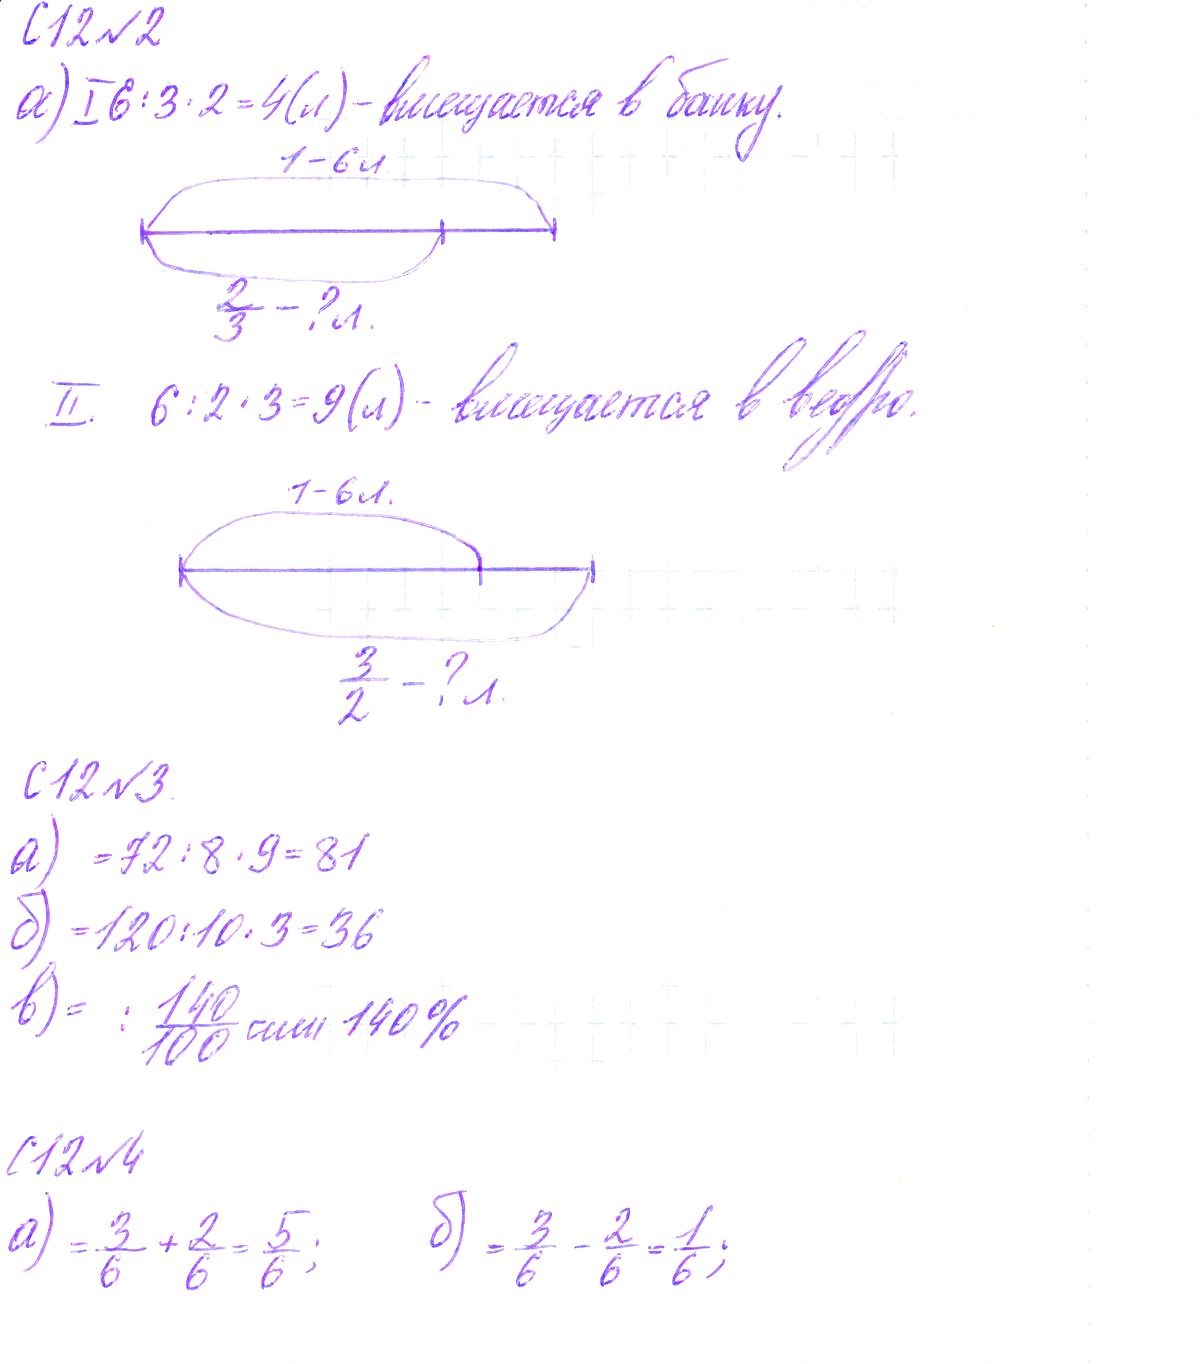 С12№2
а) I 6:3·2=4(л) - вмещается в банку.
1-6л
2/3 - ?л.
II. 6:2·3=9(л) - вмещается в ведро.
1-6л.
3/2 - ?л.
С12№3.
а) =72:8·9=81
б) =120:10·3=36
в) = : 140/100 или 140%
С12№4
а) = 3/6 + 2/6 = 5/6; б) = 3/6 - 2/6 = 1/6;